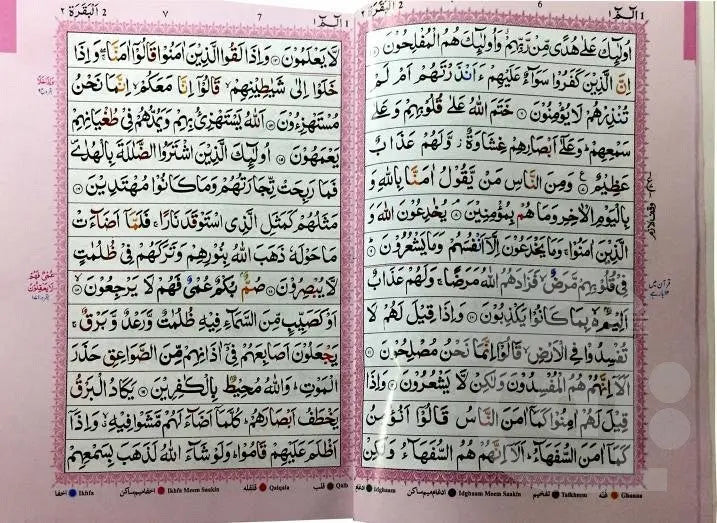 الٓمّٓ ١
6
البقرة ٢
اُولٰٓئِكَ عَلٰى هُدًى مِّنْ رَّبِّهِمْ وَاُولٰٓئِكَ هُمُ الْمُفْلِحُوْنَ
اِنَّ الَّذِيْنَ كَفَرُوْا سَوَآءٌ عَلَيْهِمْ ءَاَنْذَرْتَهُمْ اَمْ لَمْ
تُنْذِرْهُمْ لَا يُؤْمِنُوْنَ خَتَمَ اللّٰهُ عَلٰى قُلُوْبِهِمْ وَعَلٰى
سَمْعِهِمْ وَعَلٰٓى اَبْصَارِهِمْ غِشَاوَةٌ وَّلَهُمْ عَذَابٌ
عَظِيْمٌ وَمِنَ النَّاسِ مَنْ يَّقُوْلُ اٰمَنَّا بِاللّٰهِ وَ
بِالْيَوْمِ الْاٰخِرِ وَمَا هُمْ بِمُؤْمِنِيْنَ يُخٰدِعُوْنَ اللّٰهَ وَ
الَّذِيْنَ اٰمَنُوْا وَمَا يَخْدَعُوْنَ اِلَّآ اَنْفُسَهُمْ وَمَا يَشْعُرُوْنَ
فِيْ قُلُوْبِهِمْ مَّرَضٌ فَزَادَهُمُ اللّٰهُ مَرَضًا وَلَهُمْ عَذَابٌ
اَلِيْمٌۢ بِمَا كَانُوْا يَكْذِبُوْنَ وَاِذَا قِيْلَ لَهُمْ لَا
تُفْسِدُوْا فِي الْاَرْضِ قَالُوْٓا اِنَّمَا نَحْنُ مُصْلِحُوْنَ
اَلَآ اِنَّهُمْ هُمُ الْمُفْسِدُوْنَ وَلٰكِنْ لَّا يَشْعُرُوْنَ وَاِذَا
قِيْلَ لَهُمْ اٰمِنُوْا كَمَآ اٰمَنَ النَّاسُ قَالُوْٓا اَنُؤْمِنُ
كَمَآ اٰمَنَ السُّفَهَآءُ اَلَآ اِنَّهُمْ هُمُ السُّفَهَآءُ وَلٰكِنْ
غنّه Ghunna تفخيم Tafkheem ادغام ميم ساكن Idghaam Meem Saakin ادغام Idghaam
الٓمّٓ ١
7
٧
البقرة ٢
لَّا يَعْلَمُوْنَ وَاِذَا لَقُوا الَّذِيْنَ اٰمَنُوْا قَالُوْٓا اٰمَنَّا وَاِذَا
خَلَوْا اِلٰى شَيٰطِيْنِهِمْ قَالُوْٓا اِنَّا مَعَكُمْ اِنَّمَا نَحْنُ
مُسْتَهْزِءُوْنَ اَللّٰهُ يَسْتَهْزِئُ بِهِمْ وَيَمُدُّهُمْ فِيْ طُغْيَانِهِمْ
يَعْمَهُوْنَ اُولٰٓئِكَ الَّذِيْنَ اشْتَرَوُا الضَّلٰلَةَ بِالْهُدٰى
فَمَا رَبِحَتْ تِّجَارَتُهُمْ وَمَا كَانُوْا مُهْتَدِيْنَ
مَثَلُهُمْ كَمَثَلِ الَّذِي اسْتَوْقَدَ نَارًا فَلَمَّآ اَضَآءَتْ
مَا حَوْلَهٗ ذَهَبَ اللّٰهُ بِنُوْرِهِمْ وَتَرَكَهُمْ فِيْ ظُلُمٰتٍ
لَّا يُبْصِرُوْنَ صُمٌّۢ بُكْمٌ عُمْيٌ فَهُمْ لَا يَرْجِعُوْنَ
اَوْ كَصَيِّبٍ مِّنَ السَّمَآءِ فِيْهِ ظُلُمٰتٌ وَّرَعْدٌ وَّبَرْقٌ
يَجْعَلُوْنَ اَصَابِعَهُمْ فِيْٓ اٰذَانِهِمْ مِّنَ الصَّوَاعِقِ حَذَرَ
الْمَوْتِ وَاللّٰهُ مُحِيْطٌۢ بِالْكٰفِرِيْنَ يَكَادُ الْبَرْقُ
يَخْطَفُ اَبْصَارَهُمْ كُلَّمَآ اَضَآءَ لَهُمْ مَّشَوْا فِيْهِ وَاِذَآ
اَظْلَمَ عَلَيْهِمْ قَامُوْا وَلَوْ شَآءَ اللّٰهُ لَذَهَبَ بِسَمْعِهِمْ
قلب Qalb قلقله Qalqala اخفا ميم ساكن Ikhfa Meem Saakin اخفا Ikhfa